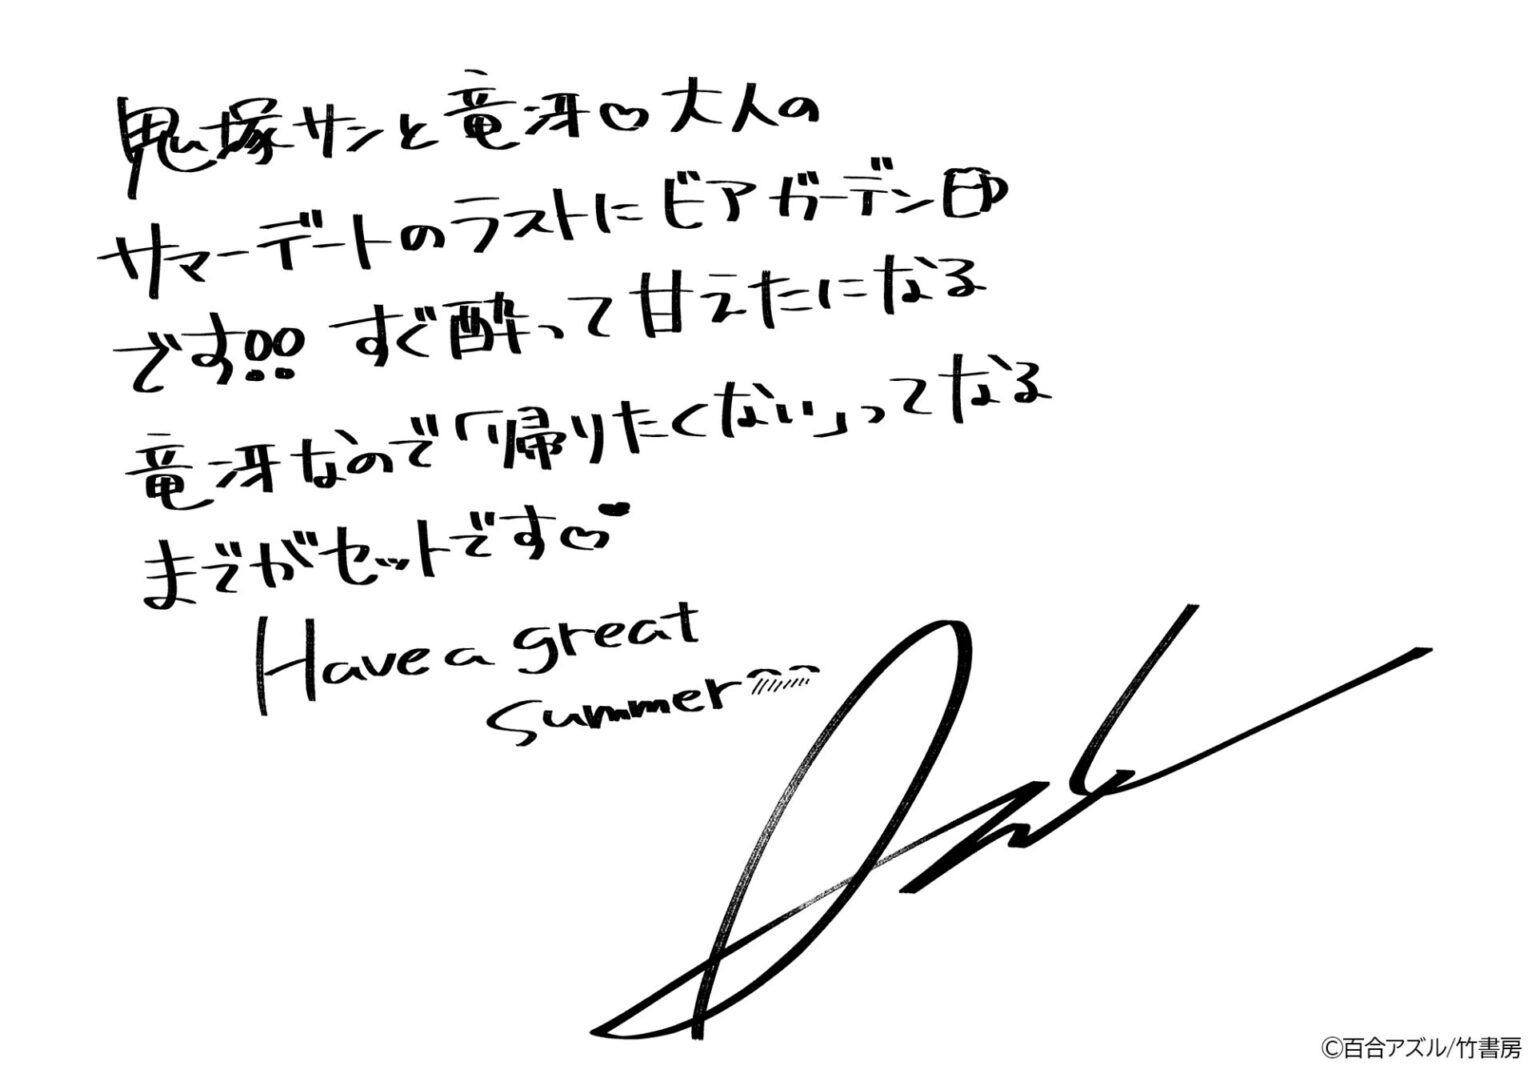 鬼塚サンと竜冴♡大人の
サマーデートのラストにビアガーデン🍺
です!!すぐ酔って甘えたになる
竜冴なので「帰りたくない」ってなる
までがセットです♡♥
Have a great
summer
©百合アズル/竹書房